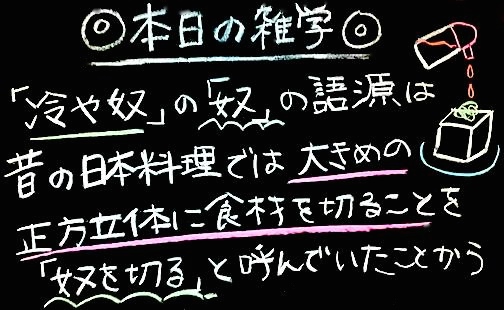 ◎本日の雑学◎
「冷や奴」の「奴」の語源は
昔の日本料理では大きめの
正方立体に食材を切ることを
「奴を切る」と呼んでいたことから